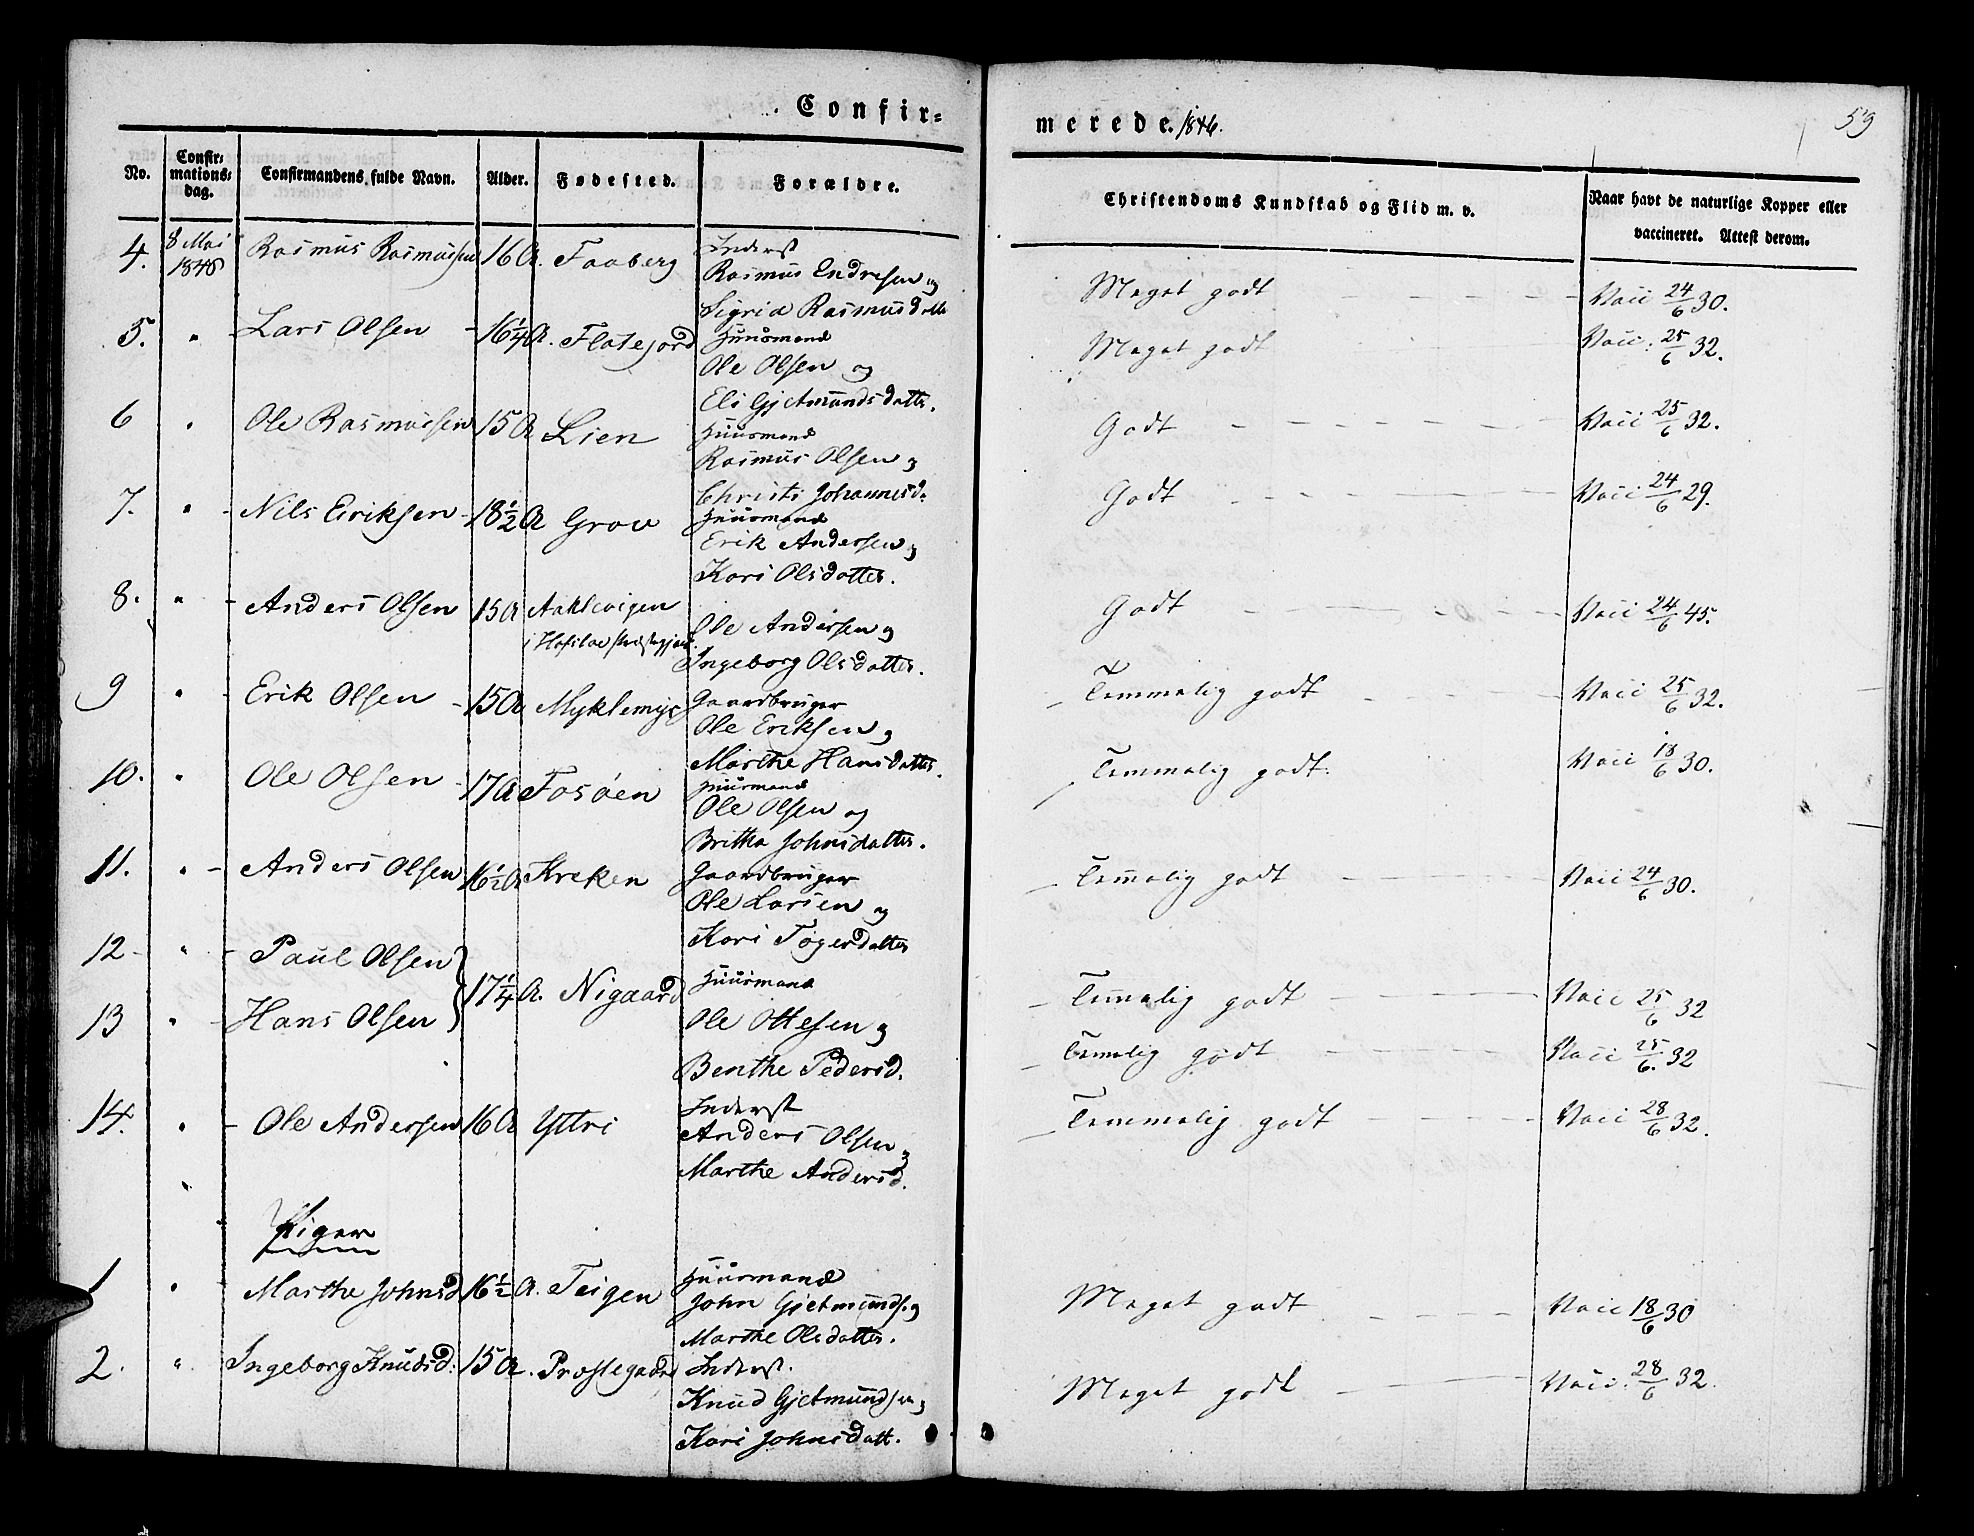 Confir=
merede. 1846.
59
No.
Confir=
mations=
dag.
Confirmandens fulde Navn.
Alder.
Fødested.
Forældre.
Christendoms Kundskab og Flid m. v.
Naar havt de naturlige Kopper eller
vaccineret. Attest derom.
4. 8 Mai Rasmus Rasmussen 16 A. Faaberg Inderst
Rasmus Endresen og
Sigrid Rasmusdatte Meget godt Vacc 24/6 30.
5. " Lars Olsen 16 1/4 A. Flatejord Huusmand
Ole Olsen og
Eli Gjetmundsdatte. Meget godt Vacc: 25/6 32.
6 " Ole Rasmussen 15 A Lien Huusmand
Rasmus Olsen og
Christi Johannesd. Godt Vacc 25/6 32.
7. " Nils Eriksen 18 1/2 A Grov Huusmand
Erik Andersen og
Kari Olsdatter. Godt Vacc 24/6 29.
8. " Anders Olsen 15 A
Ole Andersen og
Ingeborg Olsdatter. Godt Vacc 24/6 45.
9 " Erik Olsen 15 A Myklemyr Gaardbruger
Ole Eriksen og
Marthe Hansdatter. Temmelig godt Vacc 25/6 32.
10. " Ole Olsen 17 A Fosøen Huusmand
Ole Olsen og
Britha Johnsdatter. Temmelig godt. Vacc 18/6 30.
11. " Anders Olsen 16 1/2 A Kreken Gaardbruger
Ole Larsen og
Kari Tøgersdatter Temmelig godt Vacc 24/6 30.
12 " Paul Olsen 17 1/4 A. Nigaard Huusmand
Temmelig godt Vacc 25/6 32
13 " Hans Olsen Ole Ottesen og
Benthe Pedersd. Temmelig godt Vacc 25/6. 32
14. " Ole Andersen 16 A Yttri Inderst
Anders Olsen og
Marthe Andersd. Temmelig godt Vacc 28/6 32.
Piger
1 " Marthe Johnsd 16 1/2 A. Teigen Huusmand
John Gjetmunds. og
Marthe Olsdatter. Meget godt Vacc 18/6 30
2. " Ingeborg Knudsd: 15 A. Præstegaard Inderst.
Knud Gjetmundsen og
Kari Johnsdatt. Meget godt Vacc. 28/6 32.